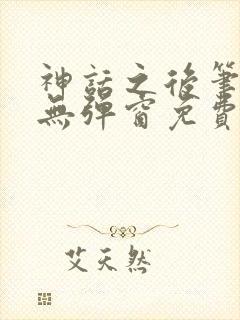 神話之後筆
無彈窗免費
艾天然